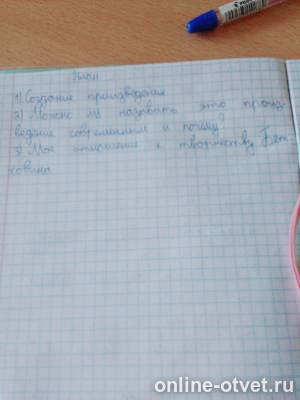 План
1) Создание произведения
2) Можно ли назвать это произ
ведение современным и почему?
3) Мое отношение к творчеству Бет
ховина.
online-otvet.ru